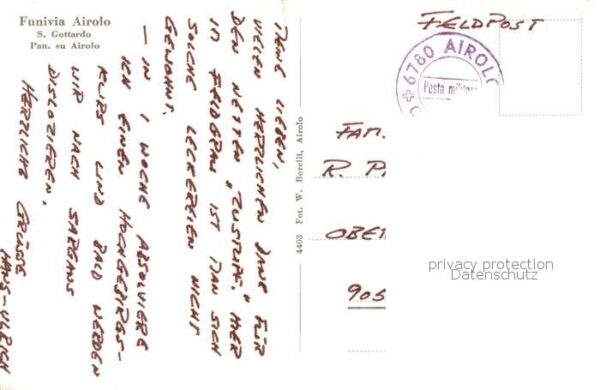 Funivia Airolo
S. Gottardo
Pan. su Airolo
MEINE LIEBEN,
VIELEN HERZLICHEN DANK FÜR
DEN NETTEN "ZUSTUPF". HIER
IN FELDGRAU IST MAN SICH
SOLCHE LECKEREIEN NICHT
GEWOHNT.
— IN 1 WOCHE ABSOLVIERE
ICH EINEN HOCHGEBIRGS-
KURS UND BALD WERDEN
WIR NACH SARGANS
DISLOZIEREN.
HERZLICHE GRÜSSE
HANS-ULRICH
4403 Fot. W. Borelli, Airolo
FELDPOST
6780 AIROLO
Posta militare
FAM.
R. P
OBE
905
privacy protection
Datenschutz